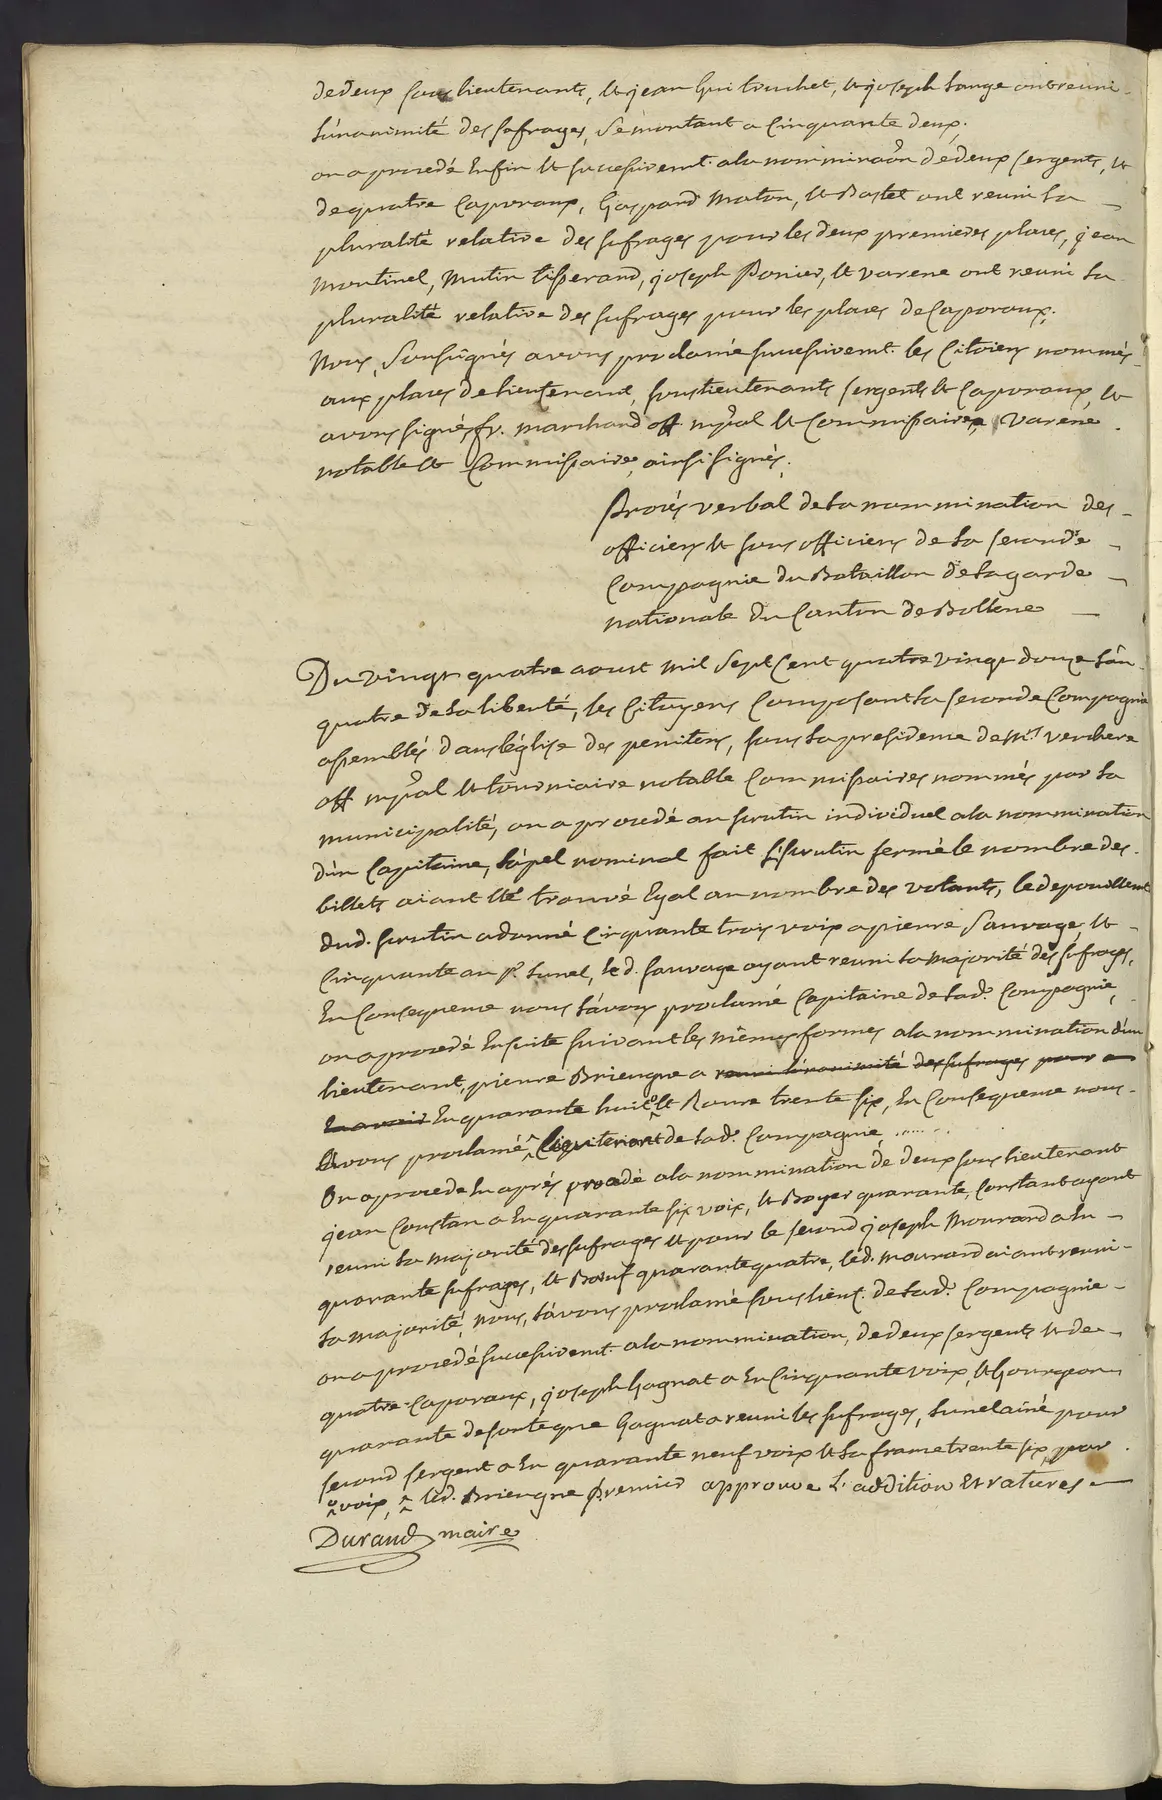 de deux sous lieutenants, et jean Gui truchet, et joseph Sauge ont reuni
L'unanimité des sufrages, se montant a Cinquante deux,
on a procedé Enfin et succesivemt. a la nomminaôn de deux sergents, et
de quatre Caporaux, Gaspard Maton, et Bastet ont reuni La
pluralité relative des sufrages pour les deux premieres places, jean
Montinel, Mutin tisserand, joseph Ponier, et varene ont reuni La
pluralité relative des sufrages pour les places de Caporaux,
Nous, Soussignés avons proclamé succesivemt. les Citoiens nommés
aux places de lieutenant, sous lieutenants sergents et Caporaux, et
avons signés, fr. marchand off. mpal et Commissaire, varene
notable et Commissaire, ainsi signés,
Procés verbal de La nommination des
officiers et sous officiers de La seconde
Compagnie du Bataillon de La garde
nationale du Canton de Bollene
Du vingt quatre aoust mil sept Cent quatre vingt douze L'an
quatre de La liberté, les Citoyens Composant La seconde Compagnie
assemblés dans léglise des penitens, sous La presidence de Mrs. verchere
off mpal et tourniaire notable Commissaires nommés par La
municipalité, on a procedé au scrutin individuel a la nommination
d'un Capitaine, L'apel nominal fait Le scrutin fermé le nombre des
billets aiant été trouvé Egal au nombre des votants, le depouillemt
dud. scrutin a donné Cinquante trois voix a pierre Sauvage, et
Cinquante au Sr. Lunel, le d. Sauvage ayant reuni La Majorité des sufrages,
En Consequence nous L'avons proclamé Capitaine de Lad. Compagnie,
on a procedé Ensuite suivant les mêmes formes a la nommination d'un
lieutenant, pierre Briengne a reuni L'unanimité des sufrages pour a
En avoir Eu quarante huit et Roure trente six, En Consequence nous
avons proclamé Lieutenant de Lad. Compagnie ......
On a procede En après procedé a la nommination de deux sous lieutenant
jean Constan a Eu quarante six voix, et Boyer quarante, Constant ayant
reuni La majorité des sufrages et pour le second joseph Mourard a Eu
quarante sufrages, et Boeuf quarante quatre, le d. Mourard aiant reuni
La majorité, nous, L'avons proclamé sous lieut. de Lad. Compagnie
on a procedé succesivemt. a la nommination, de deux sergents et de
quatre Caporaux, joseph Gagnat a Eu Cinquante voix, et Gourgeon
quarante de sorte que Gagnat a reuni les sufrages, Lunel ainé pour
second sergent a Eu quarante neuf voix et Laframe trente six, par
voix, led. Briengne premier approuve L'addition Et ratures
Durand maire